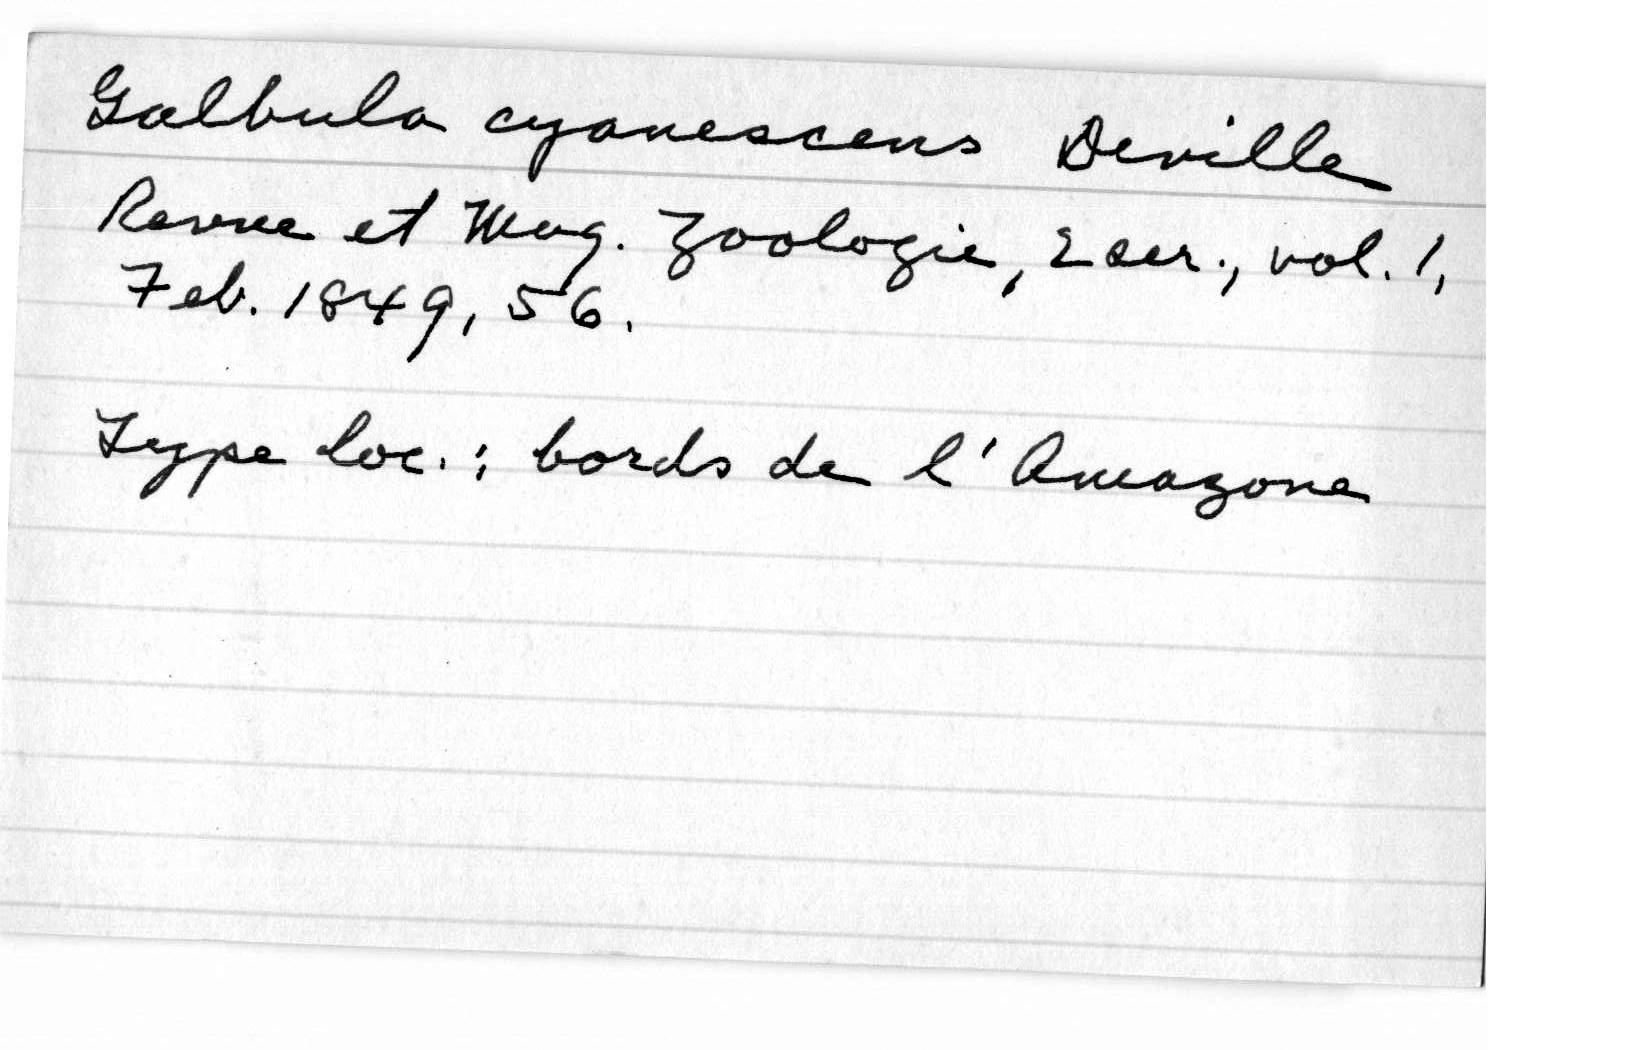 Galbula cyanescens Deville
Revue et Mag. Zoologie, 2 ser., vol. 1,
Feb. 1849, 56.
Type loc.: bords de l'Amazone